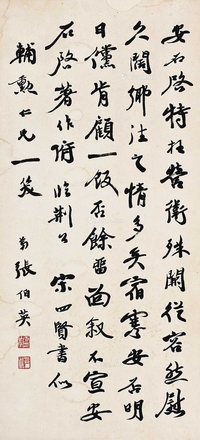 安石啓特枉營衛殊闕從容然慰
久闊鄉往之情多矣宿寒安否明
日儻肯顧一飯否餘畱面敘不宣安
石啓著作府 臨荊公 宋四賢書 似
輔勳仁兄一笑
弟張伯英